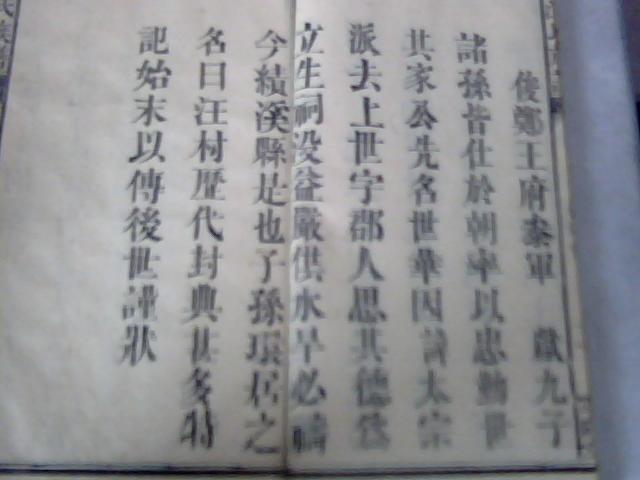 俊鄭王府參軍 獻九子
諸孫皆仕於朝率以忠勤世
其家公先名世華因諱太宗
派去上世字郡人思其德爲
立生祠没益嚴供水旱必禱
今績溪縣是也子孫環居之
名曰汪村歷代封典甚多特
記始末以傳後世謹狀